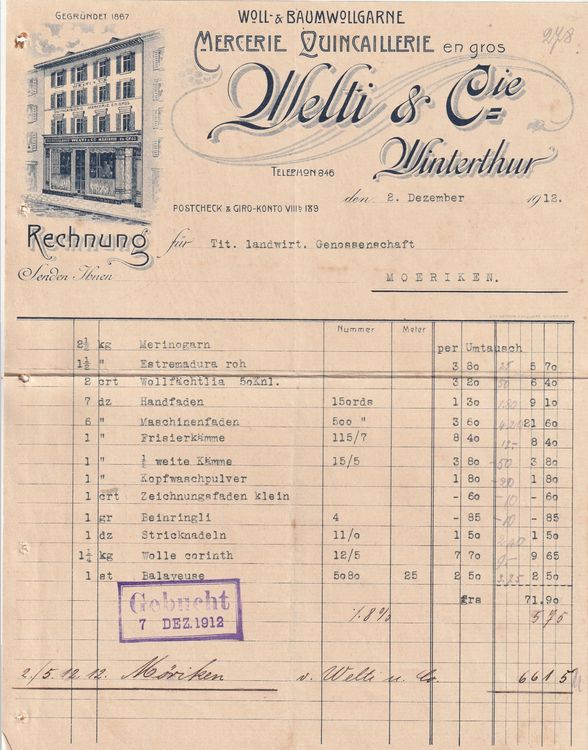 GEGRÜNDET 1867
WOLL- & BAUMWOLLGARNE
MERCERIE QUINCAILLERIE en gros
278
Welti & Cie
Winterthur
TELEPHON 846
POSTCHECK & GIRO-KONTO VIIIb 189
den 2. Dezember 1912.
Rechnung für Tit. landwirt. Genossenschaft
Senden Ihnen
MOERIKEN.
Nummer Meter
2½ kg Merinogarn per Umtausch
1½ " Estremadura roh 3 80 5 70
2 crt Wollfächtlia 50Knl. 3 20 50 6 40
7 dz Handfaden 150rds 1 30 9 10
6 " Maschinenfaden 500 " 3 60 21 60
1 " Frisierkämme 115/7 8 40 8 40
1 " ½ weite Kämme 15/5 3 80 50 3 80
1 " Kopfwaschpulver 1 80 1 80
1 crt Zeichnungsfaden klein - 60 -10 - 60
1 gr Beinringli 4 - 85 -10 - 85
1 dz Stricknadeln 11/0 1 50 1 50
1¼ kg Wolle corinth 12/5 7 70 9 65
1 st Balayeuse 5080 25 2 50 2 50
frs 71.90
Gebucht
7 DEZ. 1912
8% 5 75
2/5. 12. 12. Möriken v. Welti u. Co. 66 15